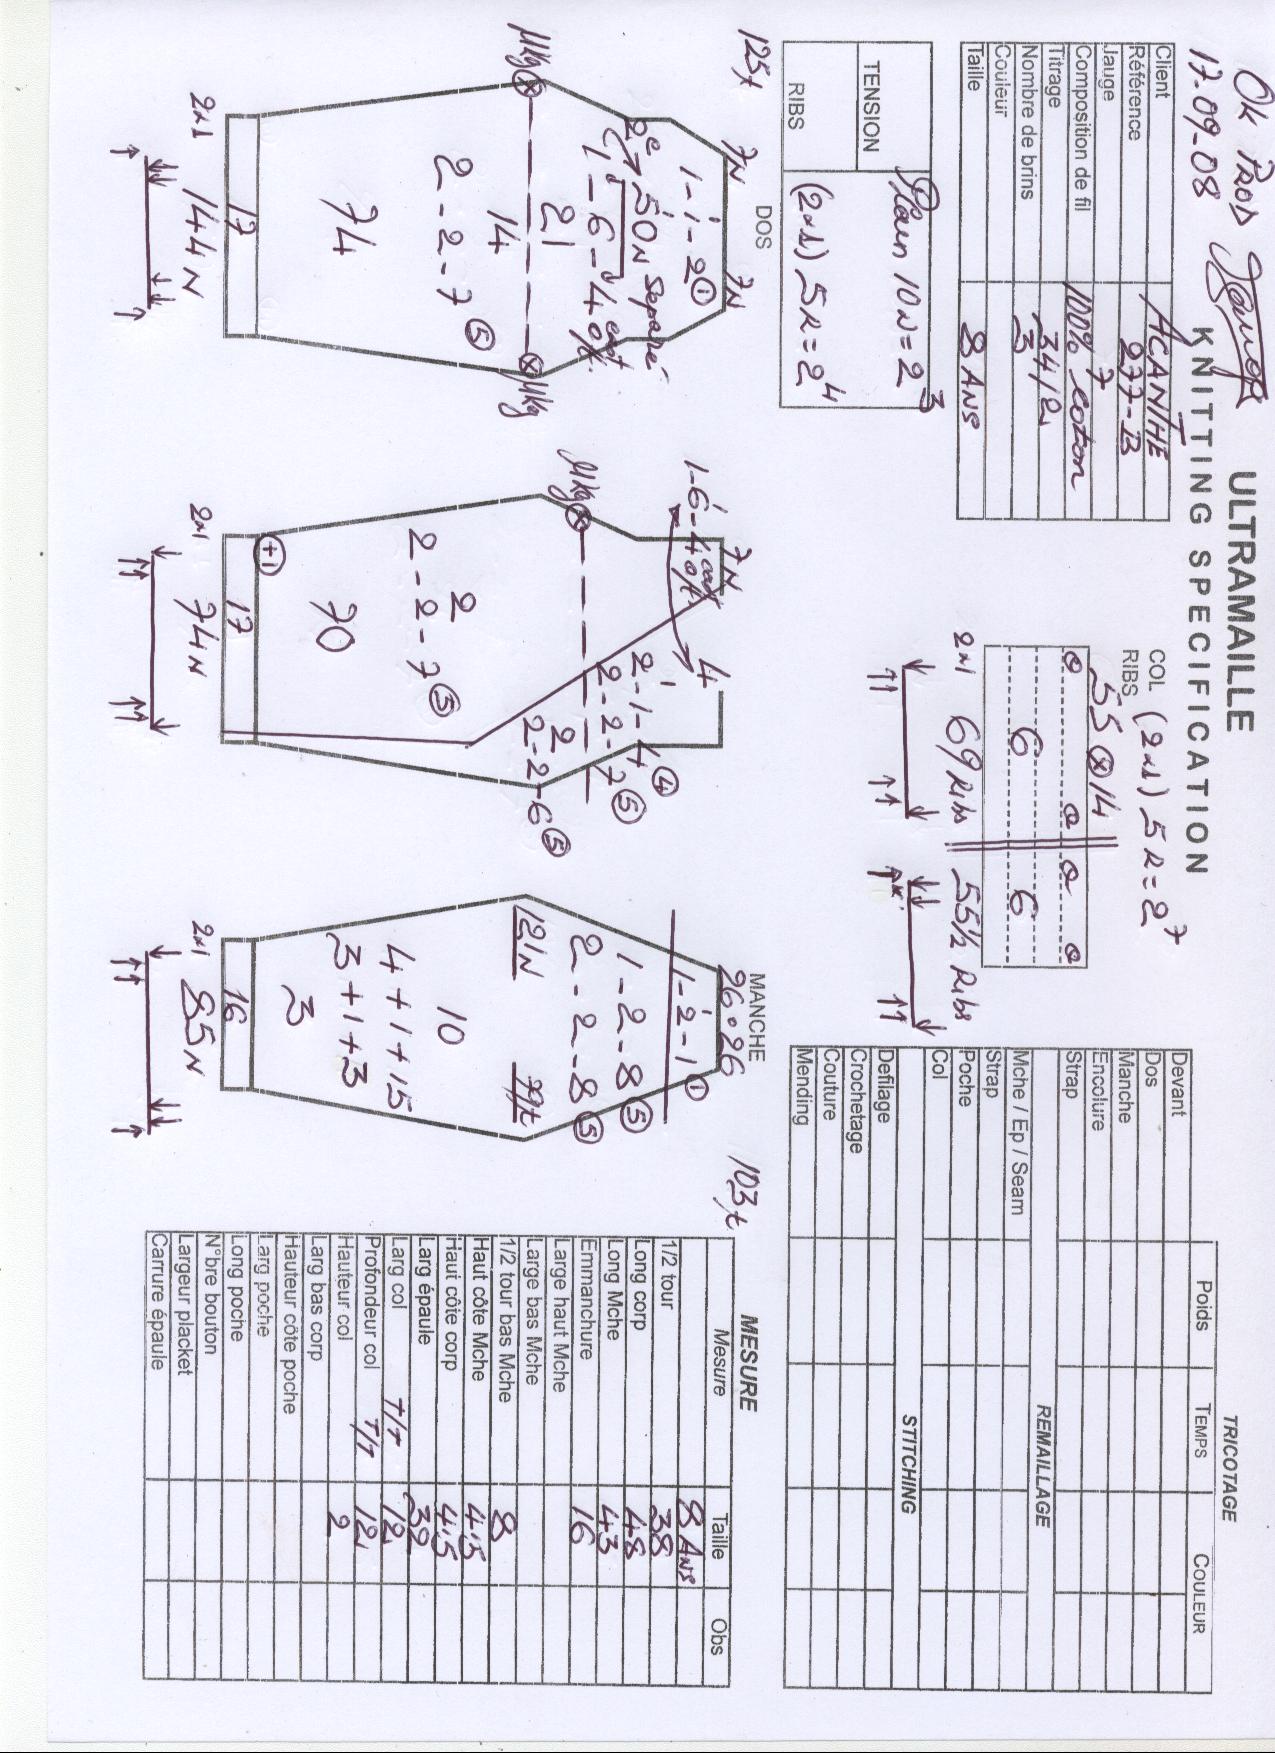 OK PROD
17-09-08
ULTRAMAILLE
KNITTING SPECIFICATION
Client ACANTHE
Référence 277-B
Jauge 7
Composition de fil 100% coton
Titrage 34/2
Nombre de brins 3
Couleur
Taille 8 ANS
TENSION Plain 10N=2³
RIBS (2x1) 5R=2⁴
COL (2x1) 5R=2⁷
RIBS
55 ⊗ 14
6 6
2x1 69 Ribs 55½ Ribs
TRICOTAGE
Poids TEMPS COULEUR
Devant
Dos
Manche
Encolure
Strap
REMAILLAGE
Mche / Ep / Seam
Strap
Poche
Col
STITCHING
Defilage
Crochetage
Couture
Mending
125t DOS
7N 7N
1
1-1-2 ①
1
2e 50N Separé
1-6-4
21
Mkg ⊗ ⊗ Mkg
14
2-2-7 ⑤
74
17
2x1 144N
7N
1
1-6-4 4
1
2-1-4 ④
2-2-7 ⑤
Mkg ⊗
2
2-2-6 ⑤
2
2-2-7 ⑤
70
+1
17
2x1 74N
MANCHE 103t
26 26
1-2-1 ①
1-2-8 ⑤
2-2-8 ⑤
121N 99t
10
4+1+15
3+1+3
3
16
2x1 85N
MESURE
Mesure Taille Obs
8 ANS
1/2 tour 38
Long corp 48
Long Mche 43
Emmanchure 16
Large haut Mche
Large bas Mche
1/2 tour bas Mche 8
Haut côte Mche 4.5
Haut côte corp 4.5
Larg épaule 32
Larg col T/T 12
Profondeur col T/T 12
Hauteur col 2
Larg bas corp
Hauteur côte poche
Larg poche
Long poche
N°bre bouton
Largeur placket
Carrure épaule